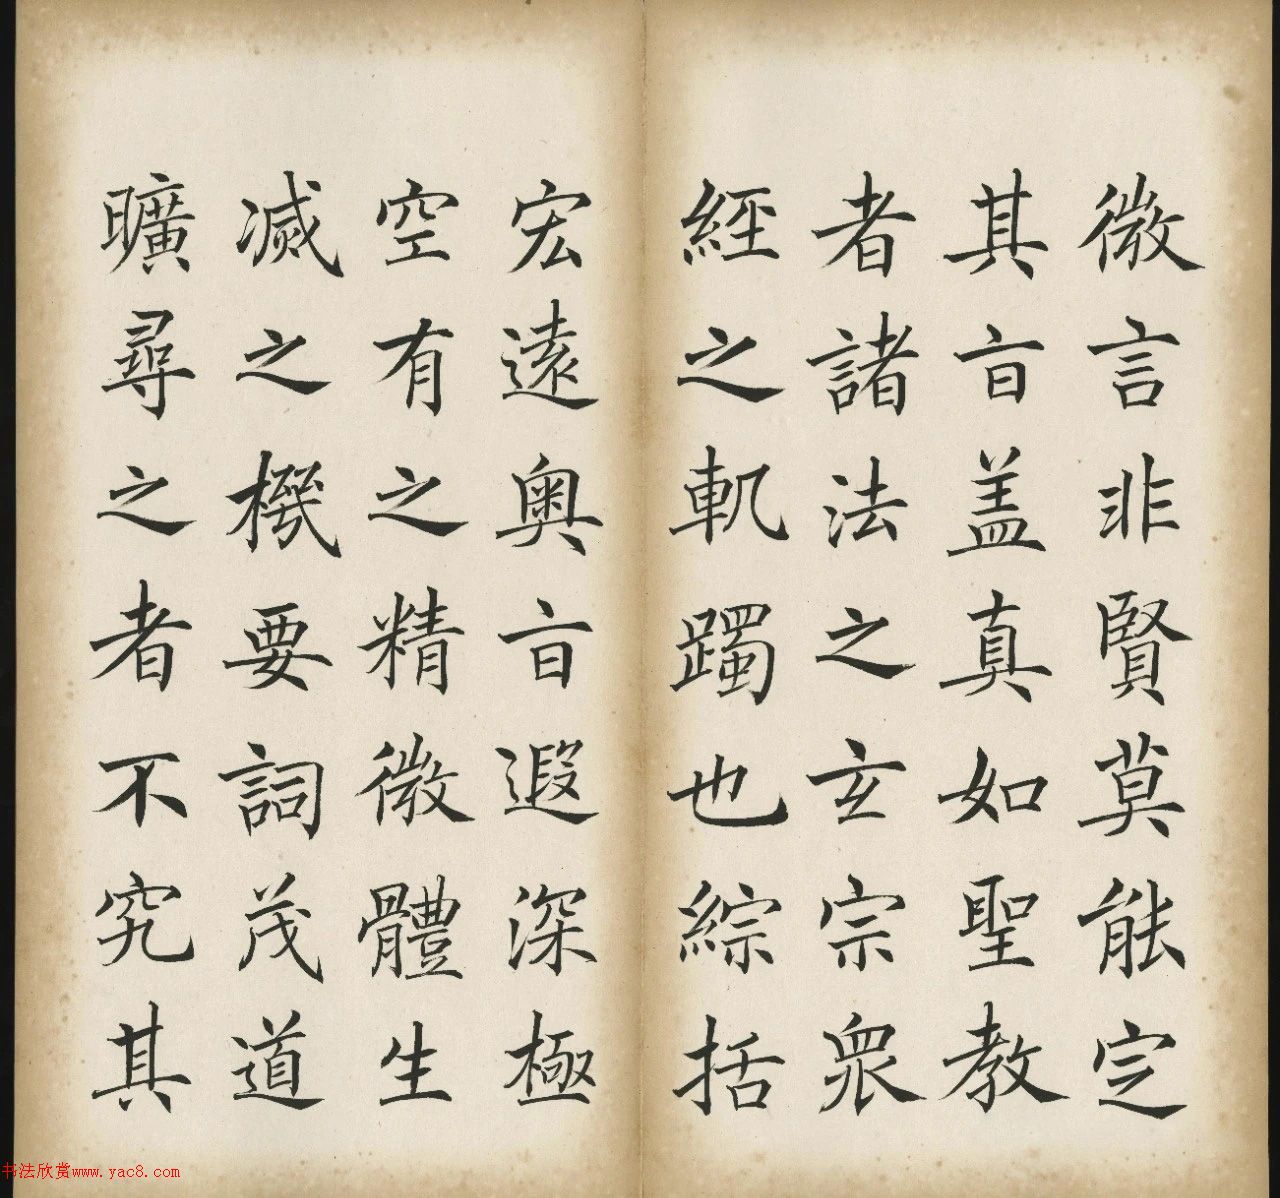 微言非賢莫能定
其㫖盖真如聖教
者諸法之玄宗衆
經之軌躅也綜括
宏遠奥㫖遐深極
空有之精微體生
滅之機要詞茂道
曠尋之者不究其
书法欣赏www.yac8.com